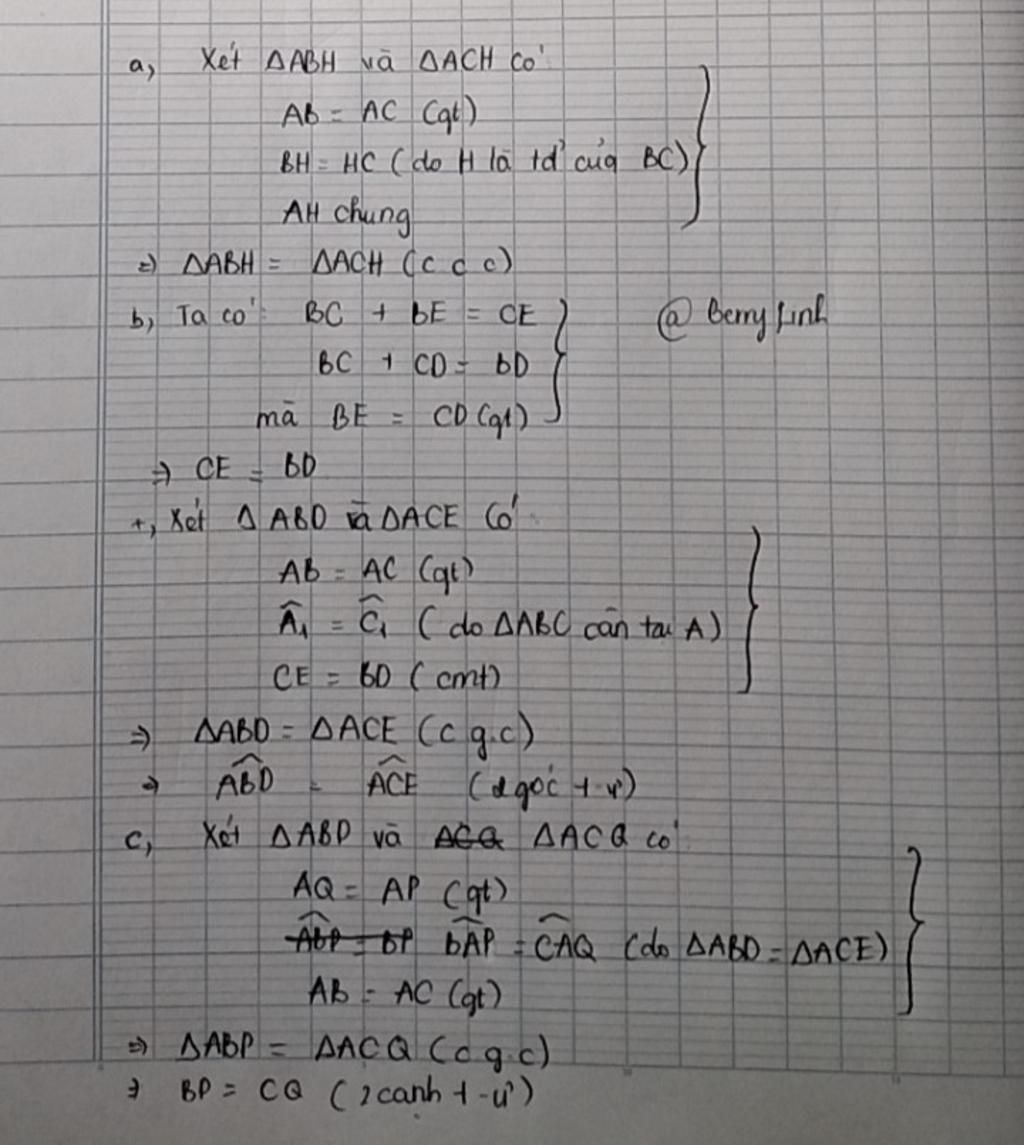 a, Xét ΔABH và ΔACH có
AB = AC (gt)
BH = HC (do H là tđ' của BC)
AH chung
=> ΔABH = ΔACH (c c c)
b, Ta có: BC + BE = CE
@ Berry Linh
BC + CD = BD
mà BE = CD (gt)
=> CE = BD
+, Xét ΔABD và ΔACE có
AB = AC (gt)
Â₁ = Ĉ₁ (do ΔABC cân tại A)
CE = BD (cmt)
=> ΔABD = ΔACE (c g.c)
=> ABD̂ = ACÊ (2 góc t-ư')
c, Xét ΔABP và ACQ ΔACQ có
AQ = AP (gt)
ABP̂ = BP BAP̂ = CAQ̂ (do ΔABD = ΔACE)
AB = AC (gt)
=> ΔABP = ΔACQ (c g.c)
=> BP = CQ (2 cạnh t-ư')